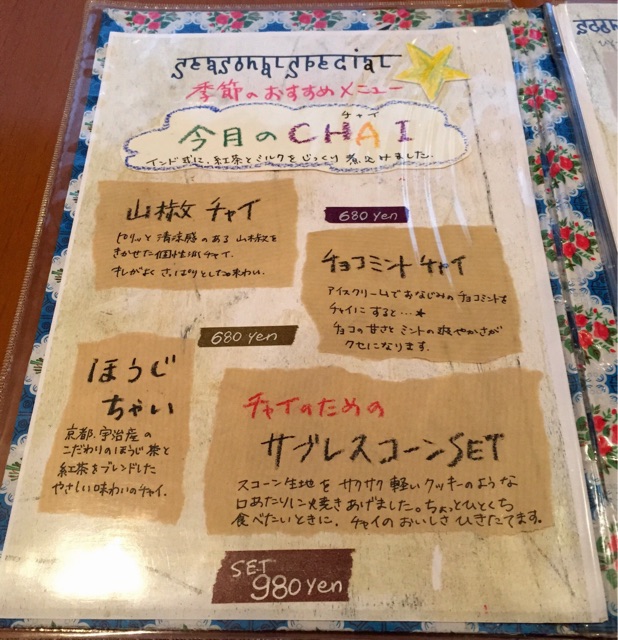 SEASONAL SPECIAL
季節のおすすめメニュー
チャイ
今月のCHAI
インド式に、紅茶とミルクをじっくり煮込けました。
山椒チャイ
680yen
ピリッと清涼感のある山椒を
きかせた個性派チャイ。
キレがよくさっぱりとした味わい。
チョコミントチャイ
アイスクリームでおなじみのチョコミントを
チャイにすると…★
チョコの甘さとミントの爽やかさが
クセになります。
680yen
ほうじ
ちゃい
京都、宇治産の
こだわりのほうじ茶と
紅茶をブレンドした
やさしい味わいのチャイ.
チャイのための
サブレスコーンSET
スコーン生地をサクサク軽いクッキーのような
口あたりに焼きあげました。ちょっとひとくち
食べたいときに、チャイのおいしさひきたてます。
SET
980yen